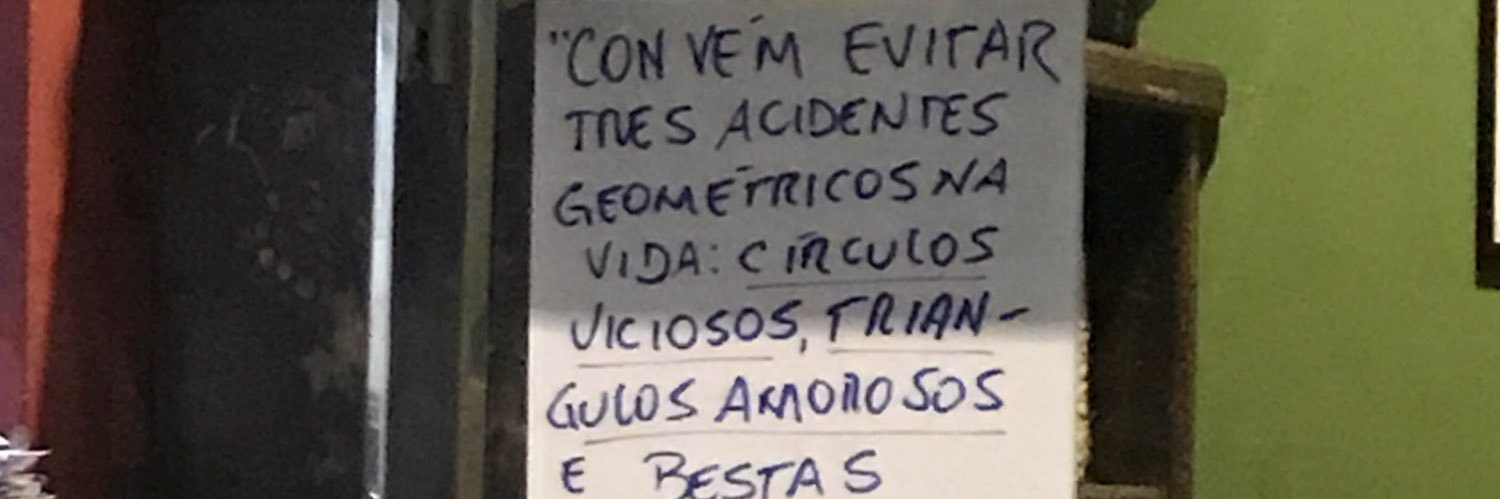 "CONVÉM EVITAR
TRES ACIDENTES
GEOMÉTRICOS NA
VIDA: CÍRCULOS
VICIOSOS, TRIAN-
GULOS AMOROSOS
E BESTAS